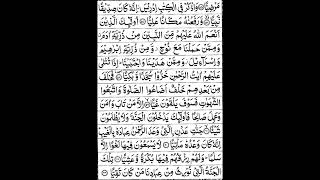 مَرْضِيًّا ۝ وَاذْكُرْ فِي الْكِتٰبِ اِدْرِيْسَ ۚ اِنَّهٗ كَانَ صِدِّيْقًا
نَّبِيًّا ۝ وَّرَفَعْنٰهُ مَكَانًا عَلِيًّا ۝ اُولٰٓئِكَ الَّذِيْنَ
اَنْعَمَ اللّٰهُ عَلَيْهِمْ مِّنَ النَّبِيّٖنَ مِنْ ذُرِّيَّةِ اٰدَمَ
وَمِمَّنْ حَمَلْنَا مَعَ نُوْحٍ وَّمِنْ ذُرِّيَّةِ اِبْرٰهِيْمَ
وَاِسْرَآءِيْلَ وَمِمَّنْ هَدَيْنَا وَاجْتَبَيْنَا ۚ اِذَا تُتْلٰى
عَلَيْهِمْ اٰيٰتُ الرَّحْمٰنِ خَرُّوْا سُجَّدًا وَّبُكِيًّا ۝ فَخَلَفَ
مِنْۢ بَعْدِهِمْ خَلْفٌ اَضَاعُوا الصَّلٰوةَ وَاتَّبَعُوا
الشَّهَوٰتِ فَسَوْفَ يَلْقَوْنَ غَيًّا ۝ اِلَّا مَنْ تَابَ وَاٰمَنَ
وَعَمِلَ صَالِحًا فَاُولٰٓئِكَ يَدْخُلُوْنَ الْجَنَّةَ وَلَا يُظْلَمُوْنَ
شَيْـًٔا ۝ جَنّٰتِ عَدْنِ ۣالَّتِيْ وَعَدَ الرَّحْمٰنُ عِبَادَهٗ بِالْغَيْبِ
اِنَّهٗ كَانَ وَعْدُهٗ مَاْتِيًّا ۝ لَا يَسْمَعُوْنَ فِيْهَا لَغْوًا اِلَّا
سَلٰمًا وَلَهُمْ رِزْقُهُمْ فِيْهَا بُكْرَةً وَّعَشِيًّا ۝ تِلْكَ
الْجَنَّةُ الَّتِيْ نُوْرِثُ مِنْ عِبَادِنَا مَنْ كَانَ تَقِيًّا ۝